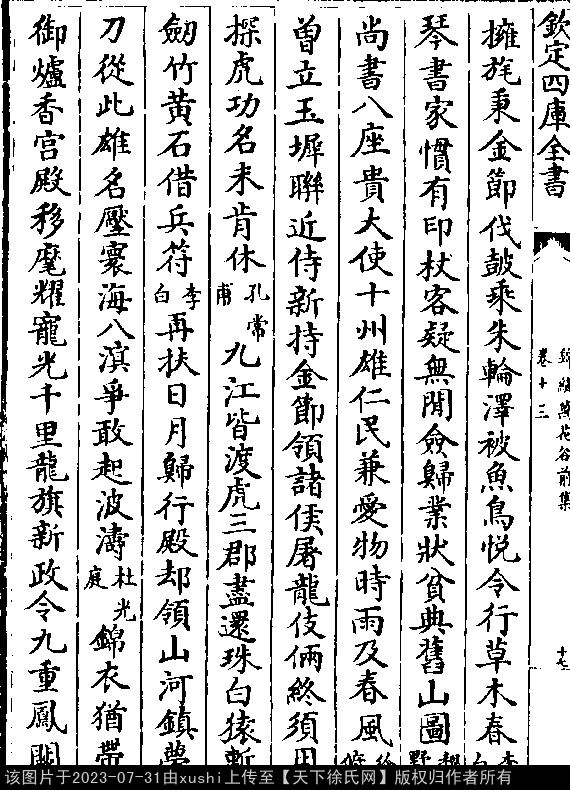 欽定四庫全書
錦繡萬花谷前集
卷十三
十七
擁旄秉金節伐鼓乘朱輪澤被魚鳥悅令行草木春李白
琴書家慣有印杖客疑無閒僉歸業狀貧典舊山圖
尚書八座貴大使十州雄仁民兼愛物時雨及春風
曽立玉墀聯近侍新持金節領諸侯屠龍伎倆終須用
探虎功名未肯休孔常甫九江皆渡虎三郡盡還珠白猿慙
劒竹黄石借兵符李白再扶日月歸行殿却領山河鎮夢
刀從此雄名壓寰海八溟爭敢起波濤杜光庭錦衣猶帶
御爐香宫殿移麾耀寵光千里龍旗新政令九重鳳闕
该图片于2023-07-31由xushi上传至【天下徐氏网】版权归作者所有